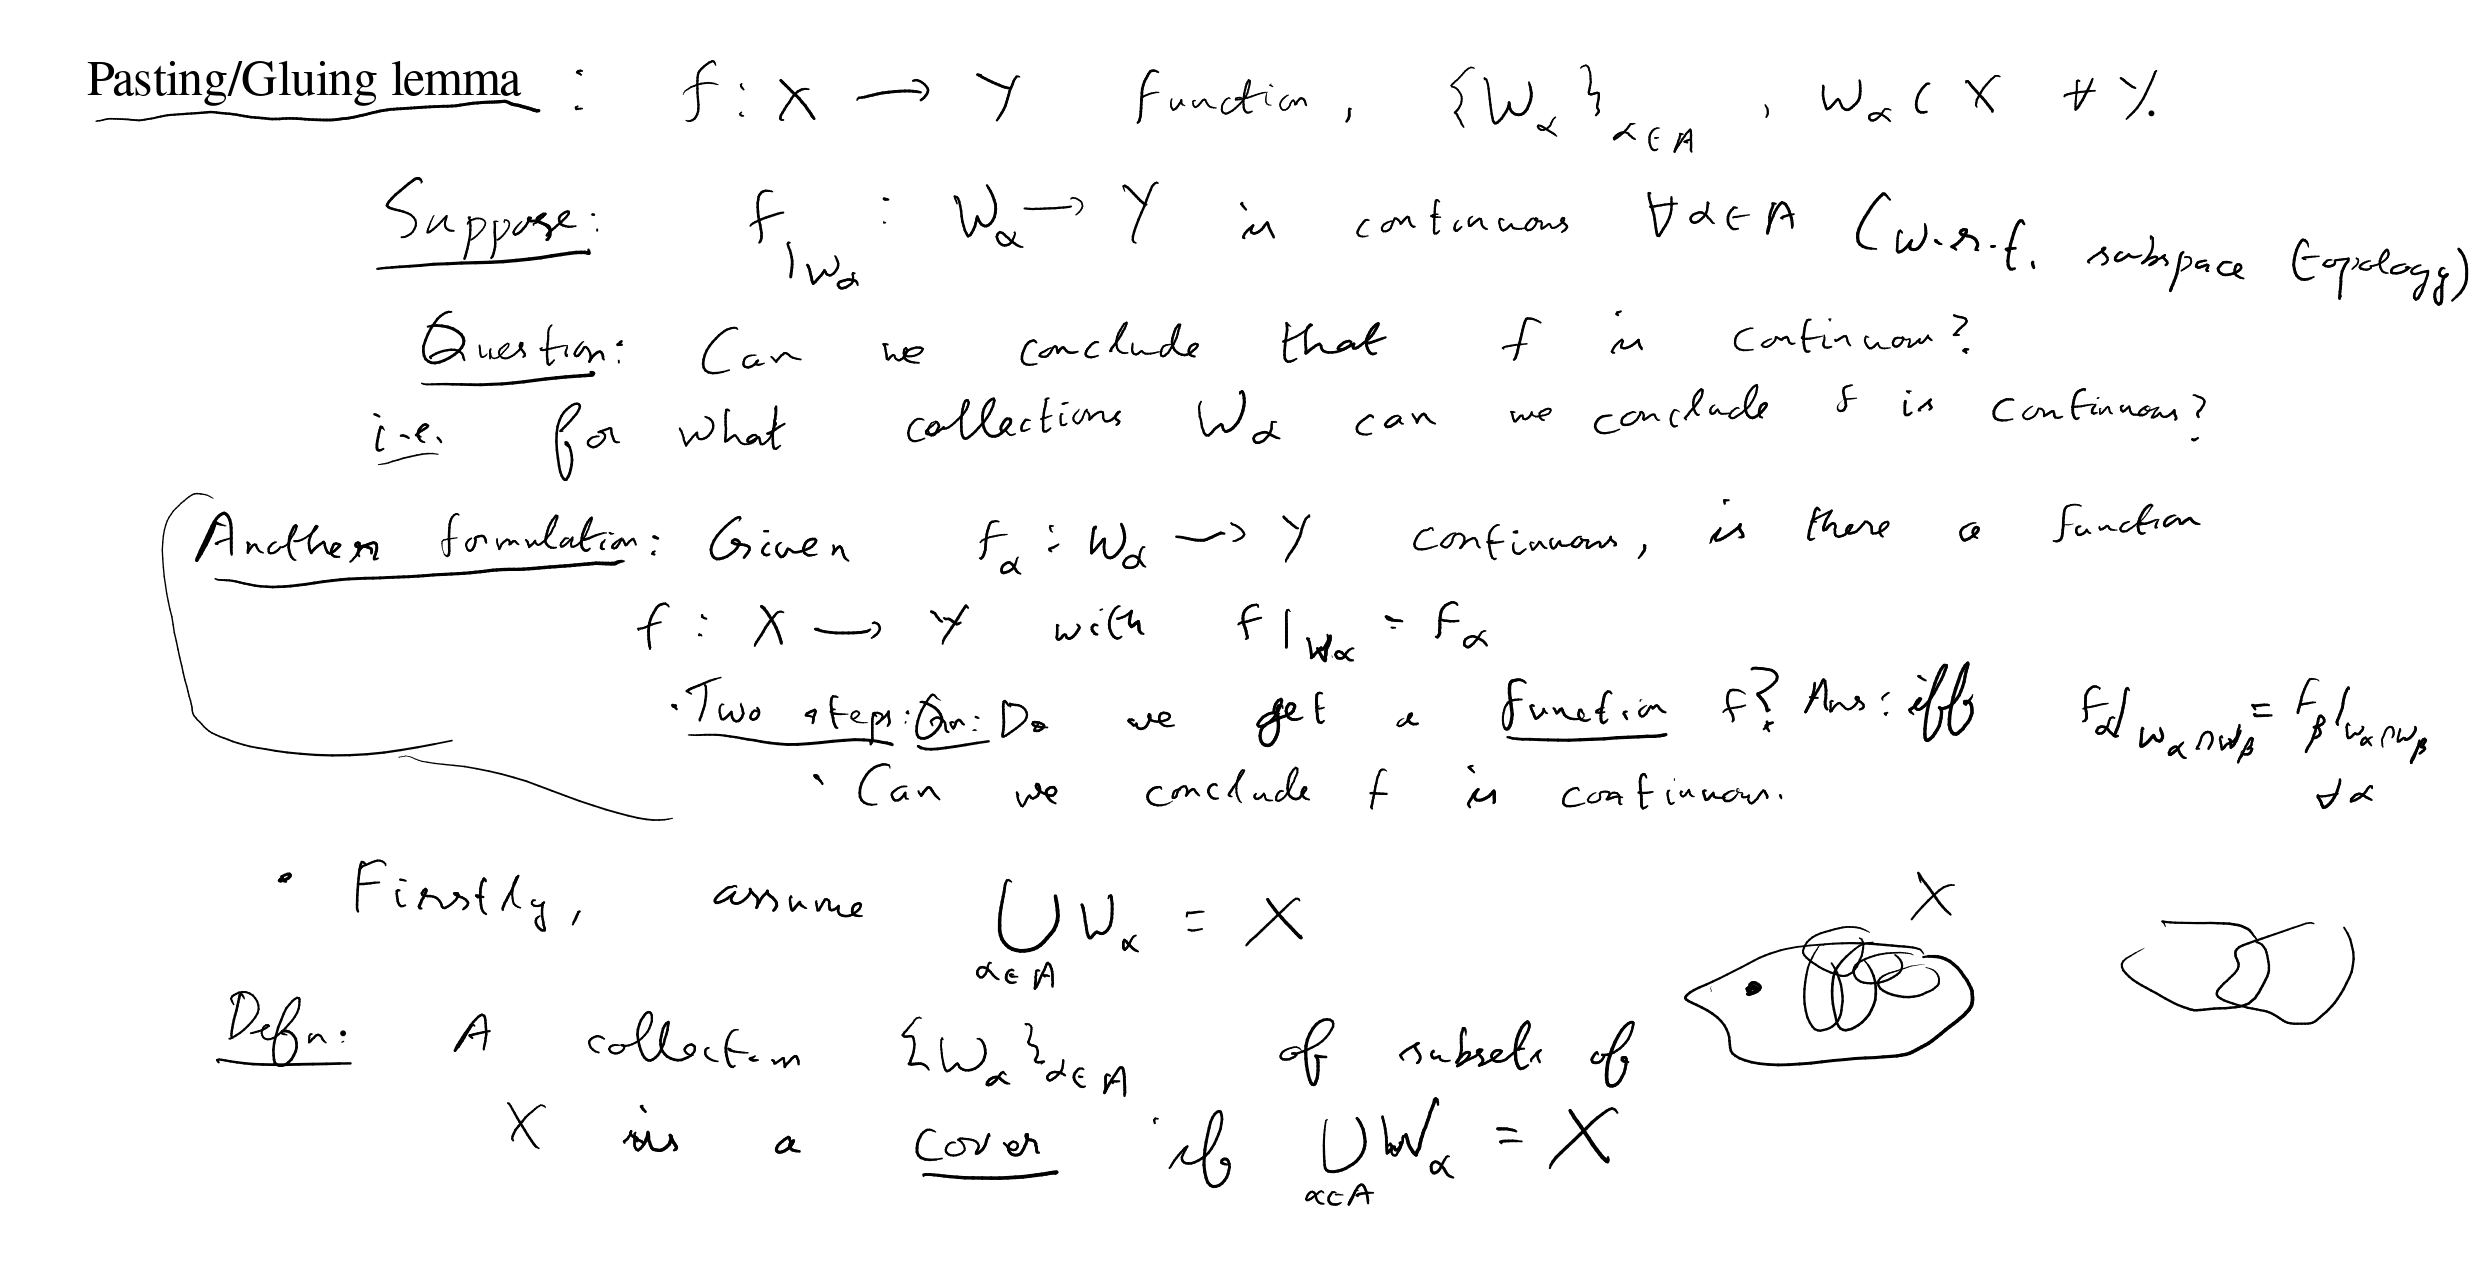 Pasting/Gluing lemma : f : X → Y function, {W_α}_{α∈A} , W_α ⊂ X ∀ γ.
Suppose: f|_{W_α} : W_α → Y is continuous ∀ α ∈ A (w.r.t. subspace topology)
Question: Can we conclude that f is continuous?
i.e. for what collections W_α can we conclude f is continuous?
Another formulation: Given f_α : W_α → Y continuous, is there a function
f : X → Y with f|_{W_α} = f_α
· Two steps: Qn: Do we get a function f? Ans: iff f_α|_{W_α∩W_β} = f_β|_{W_α∩W_β}
∀ α
· Can we conclude f is continuous.
· Firstly, assume ⋃_{α∈A} W_α = X
X
Defn: A collection {W_α}_{α∈A} of subsets of
X is a cover if ⋃_{α∈A} W_α = X